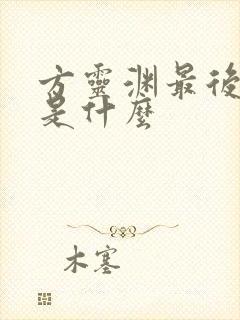 方靈渊最後
是什麼
木塞